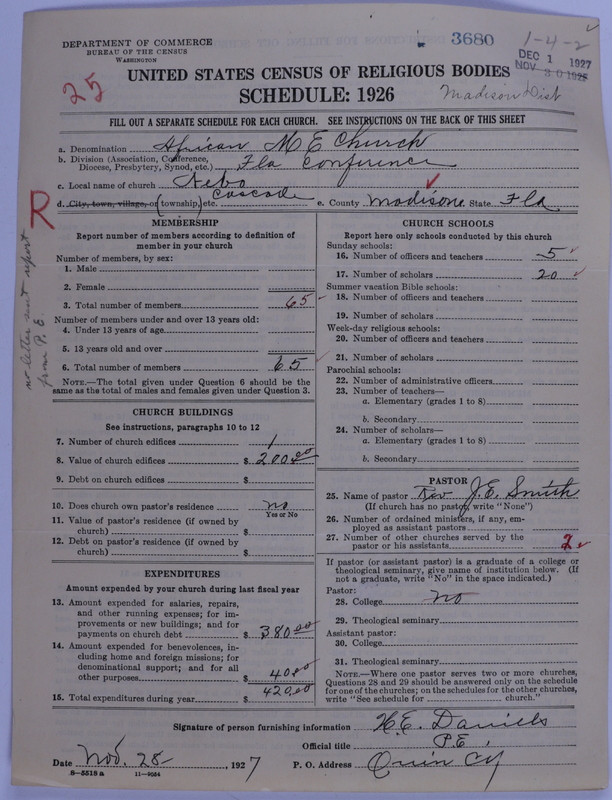 DEPARTMENT OF COMMERCE
BUREAU OF THE CENSUS
WASHINGTON
3680
1-4-2
DEC 1 1927
NOV 30 1925
25
UNITED STATES CENSUS OF RELIGIOUS BODIES
SCHEDULE: 1926
Madison Dist
FILL OUT A SEPARATE SCHEDULE FOR EACH CHURCH. SEE INSTRUCTIONS ON THE BACK OF THIS SHEET
a. Denomination African M E Church
b. Division (Association, Conference, Diocese, Presbytery, Synod, etc.) Fla Conference
c. Local name of church Nebo
d. City, town, village, or (township,) etc. Cascade e. County Madison State Fla
R
no letter sent report
from P. E.
MEMBERSHIP
Report number of members according to definition of
member in your church
Number of members, by sex:
1. Male
2. Female
3. Total number of members 65
Number of members under and over 13 years old:
4. Under 13 years of age
5. 13 years old and over
6. Total number of members 65
NOTE.—The total given under Question 6 should be
same as the total of males and females given under Question 3.
CHURCH BUILDINGS
See instructions, paragraphs 10 to 12
7. Number of church edifices 1
8. Value of church edifices $ 200.00
9. Debt on church edifices $
10. Does church own pastor's residence no
Yes or No
11. Value of pastor's residence (if owned by
church) $
12. Debt on pastor's residence (if owned by
church) $
EXPENDITURES
Amount expended by your church during last fiscal year
13. Amount expended for salaries, repairs,
and other running expenses; for im-
provements or new buildings; and for
payments on church debt $ 380.00
14. Amount expended for benevolences, in-
cluding home and foreign missions; for
denominational support; and for all
other purposes $ 40.00
15. Total expenditures during year $ 420.00
CHURCH SCHOOLS
Report here only schools conducted by this church
Sunday schools:
16. Number of officers and teachers 5
17. Number of scholars 20
Summer vacation Bible schools:
18. Number of officers and teachers
19. Number of scholars
Week-day religious schools:
20. Number of officers and teachers
21. Number of scholars
Parochial schools:
22. Number of administrative officers
23. Number of teachers—
a. Elementary (grades 1 to 8)
b. Secondary
24. Number of scholars—
a. Elementary (grades 1 to 8)
b. Secondary
PASTOR
25. Name of pastor Rev J. E. Smith
(If church has no pastor, write "None")
26. Number of ordained ministers, if any, em-
ployed as assistant pastors
27. Number of other churches served by the
pastor or his assistants 2
If pastor (or assistant pastor) is a graduate of a college or
theological seminary, give name of institution below. (If
not a graduate, write "No" in the space indicated.)
Pastor:
28. College no
29. Theological seminary
Assistant pastor:
30. College
31. Theological seminary
NOTE.—Where one pastor serves two or more churches,
Questions 28 and 29 should be answered only on the schedule
for one of the churches; on the schedules for the other churches,
write "See schedule for church."
Signature of person furnishing information H. E. Daniels
Official title P. E
Date Nov. 28 , 1927 P. O. Address Quincy
8-5518 a 11-9064